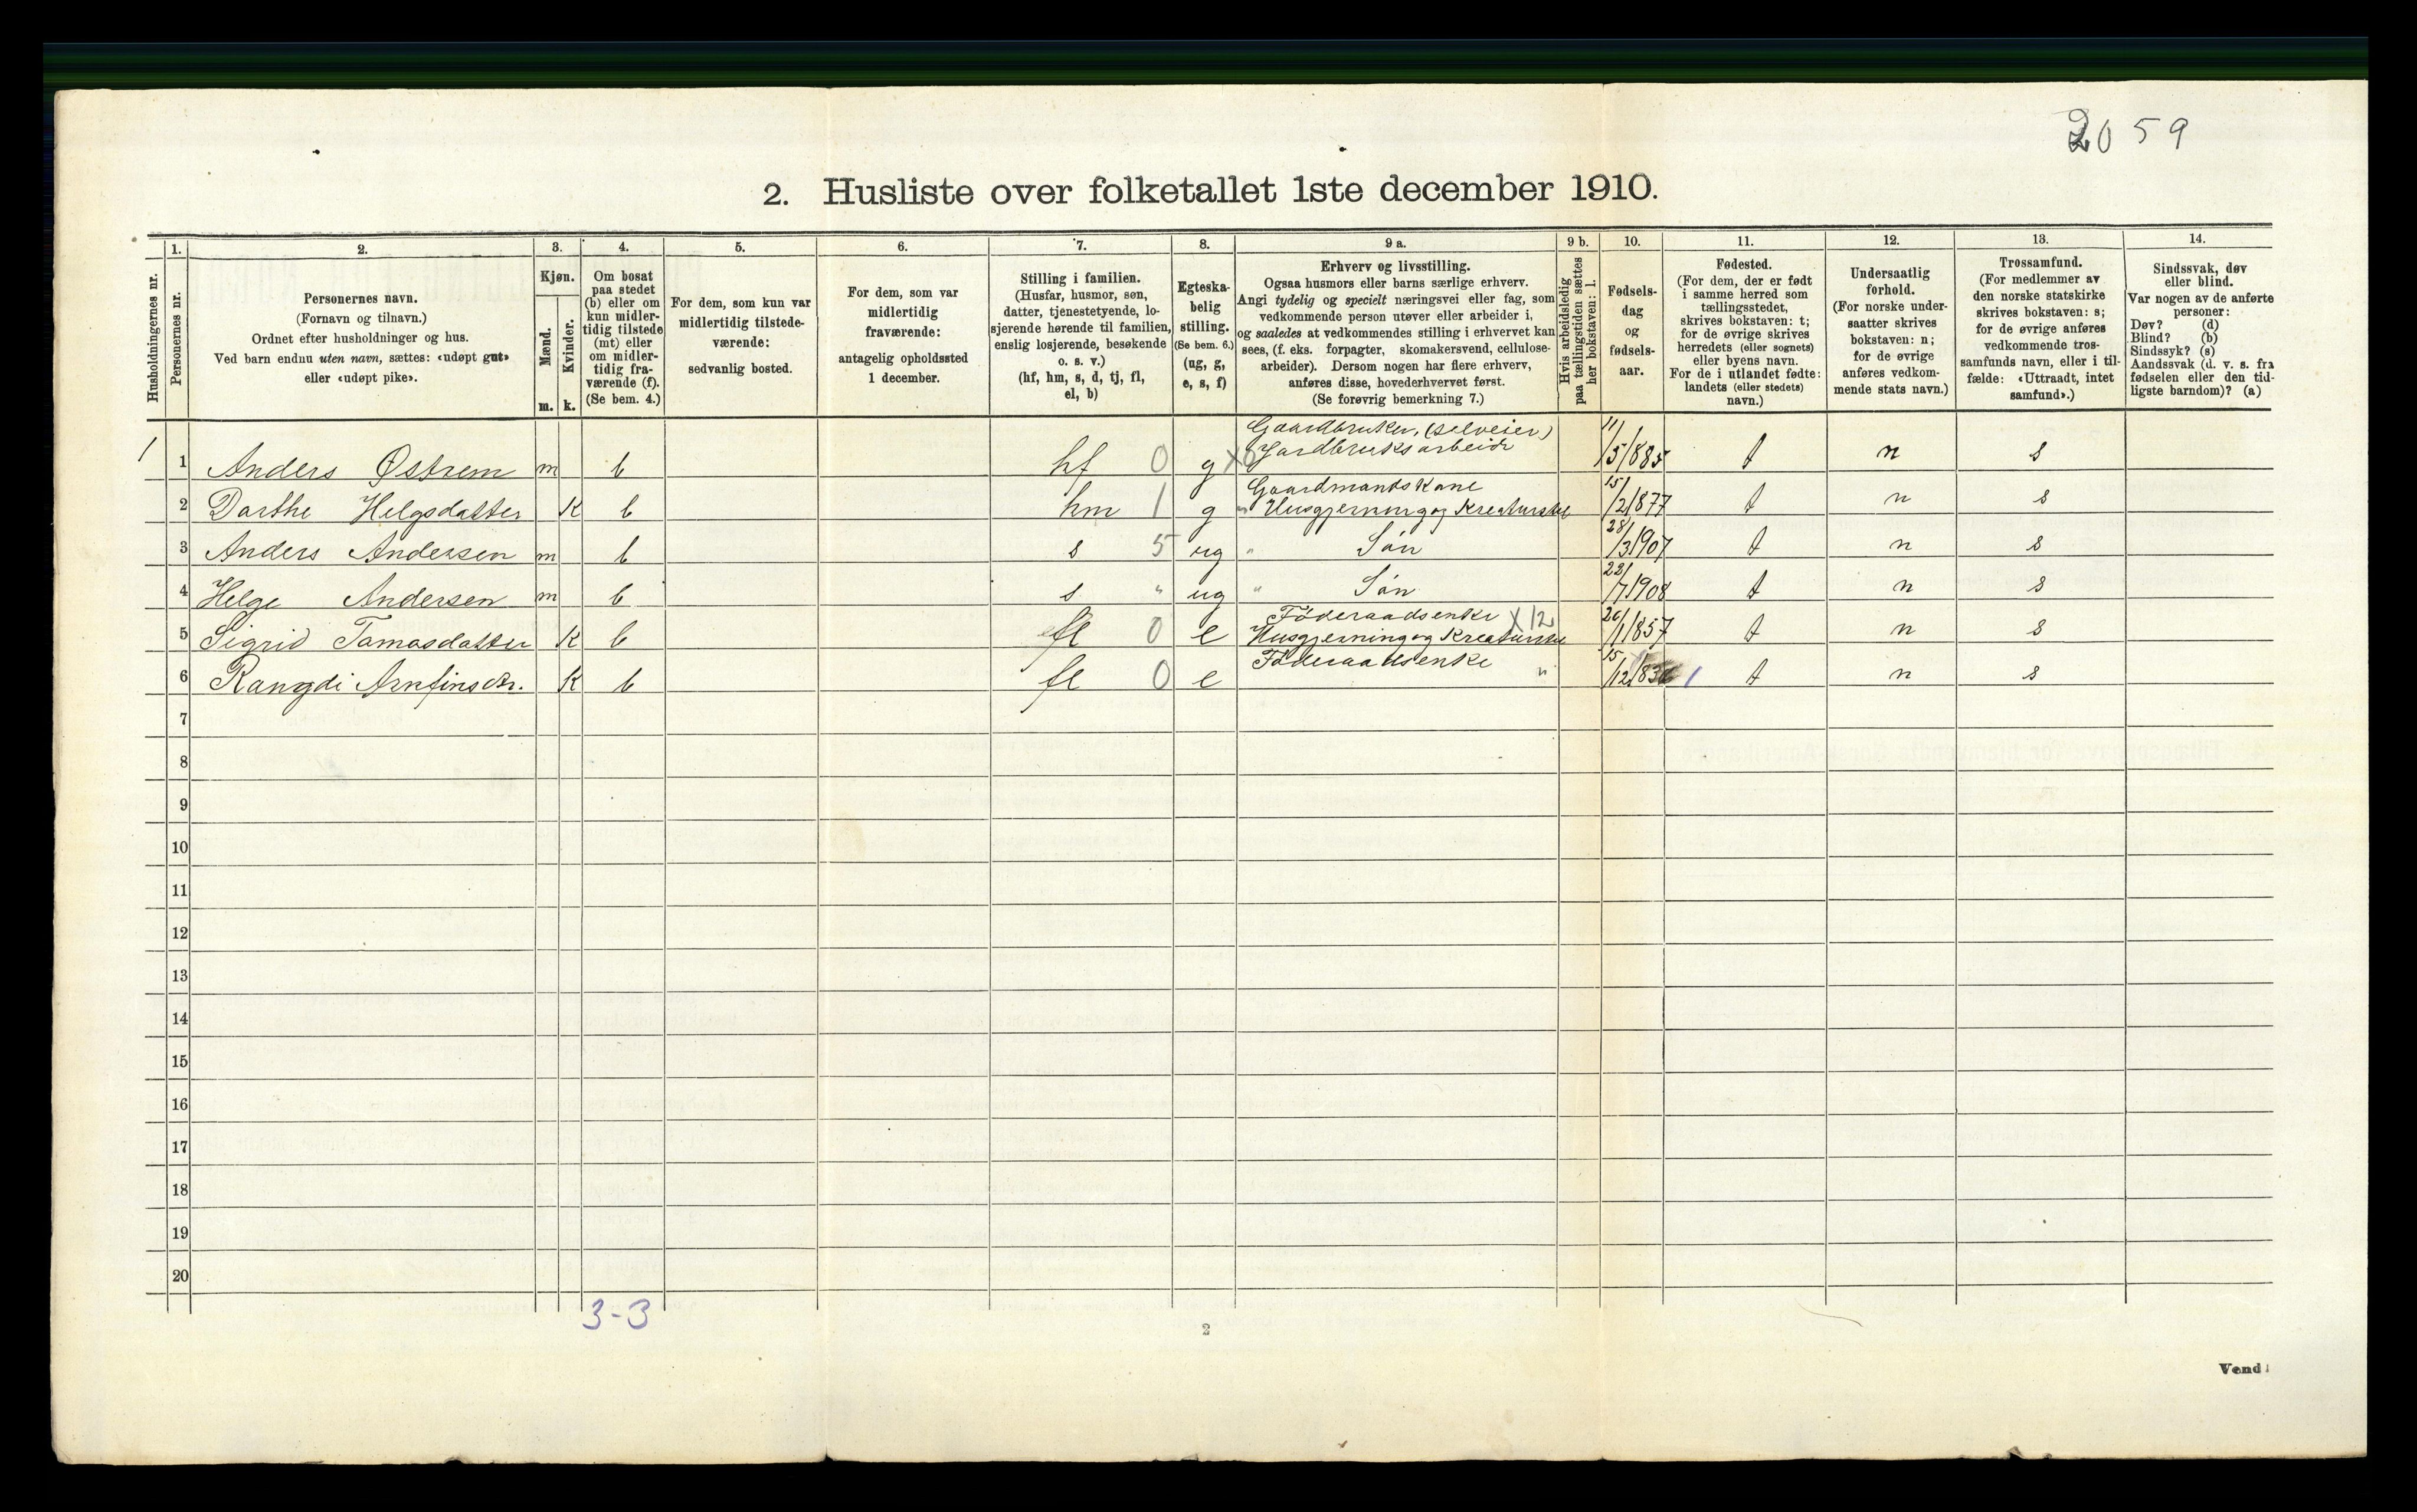 2059
2. Husliste over folketallet 1ste december 1910.
Husholdningernes nr.
1.
Personernes nr.
2.
Personernes navn.
(Fornavn og tilnavn.)
Ordnet efter husholdninger og hus.
Ved barn endnu uten navn, sættes: «udøpt gut»
eller «udøpt pike».
3.
Kjøn.
Mænd.
Kvinder.
m. k.
4.
Om bosat
paa stedet
(b) eller om
kun midler-
tidig tilstede
(mt) eller
om midler-
tidig fra-
værende (f).
(Se bem. 4.)
5.
For dem, som kun var
midlertidig tilstede-
værende:
sedvanlig bosted.
6.
For dem, som var
midlertidig
fraværende:
antagelig opholdssted
1 december.
7.
Stilling i familien.
(Husfar, husmor, søn,
datter, tjenestetyende, lo-
sjerende hørende til familien,
enslig losjerende, besøkende
o. s. v.)
(hf, hm, s, d, tj, fl,
el, b)
8.
Egteska-
belig
stilling.
(Se bem. 6.)
(ug, g,
e, s, f)
9 a.
Erhverv og livsstilling.
Ogsaa husmors eller barns særlige erhverv.
Angi tydelig og specielt næringsvei eller fag, som
vedkommende person utøver eller arbeider i,
og saaledes at vedkommendes stilling i erhvervet kan
sees, (f. eks. forpagter, skomakersvend, cellulose-
arbeider). Dersom nogen har flere erhverv,
anføres disse, hovederhvervet først.
(Se forøvrig bemerkning 7.)
9 b.
Hvis arbeidsledig
paa tællingstiden sættes
her bokstaven: l.
10.
Fødsels-
dag
og
fødsels-
aar.
11.
Fødested.
(For dem, der er født
i samme herred som
tællingsstedet,
skrives bokstaven: t;
for de øvrige skrives
herredets (eller sognets)
eller byens navn.
For de i utlandet fødte:
landets (eller stedets)
navn.)
12.
Undersaatlig
forhold.
(For norske under-
saatter skrives
bokstaven: n;
for de øvrige
anføres vedkom-
mende stats navn.)
13.
Trossamfund.
(For medlemmer av
den norske statskirke
skrives bokstaven: s;
for de øvrige anføres
vedkommende tros-
samfunds navn, eller i til-
fælde: «Uttraadt, intet
samfund».)
14.
Sindssvak, døv
eller blind.
Var nogen av de anførte
personer:
Døv? (d)
Blind? (b)
Sindssyk? (s)
Aandssvak (d. v. s. fra
fødselen eller den tid-
ligste barndom)? (a)
Gaardbruker, (selveier)
1 1 Anders Østrem m b hf 0 g Jardbruksarbeide 11/5/885 t n s
Gaardmandskone
2 Darthe Helgsdatter K b hm 1 g " Husgjerning og Kreaturstel 15/2/877 t n s
3 Anders Andersen m b s 5 ug " Søn 28/3/1907 t n s
4 Helge Andersen m b s " ug " Søn 22/7/1908 t n s
Føderaadsenke X 12
5 Sigrid Tamasdatter K b fl 0 e Husgjerning og Kreaturstel 20/1/857 t n s
Føderaadsenke "
6 Rangdi Arnfinsdtr. K b fl 0 e 15/12/83 1 t n s
7
8
9
10
11
12
13
14
15
16
17
18
19
20
3-3
2
Vend!